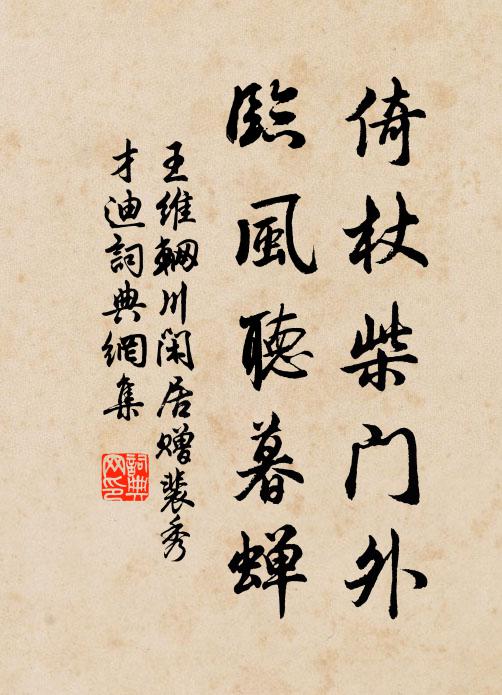 倚杖柴门外
臨風聽暮蝉
王維輞川閑居贈裴秀
才迪詞典網集
詞典
网印